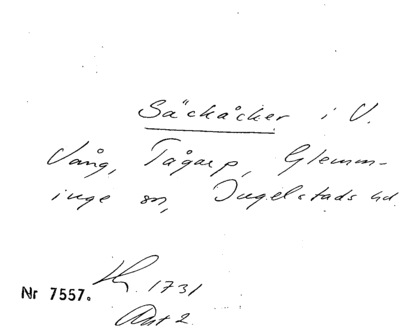 Säckåcker i V.
Vång, Tågarp, Glemm-
inge sn, Ingelstads hd.
1731
Nr 7557.
Akt 2